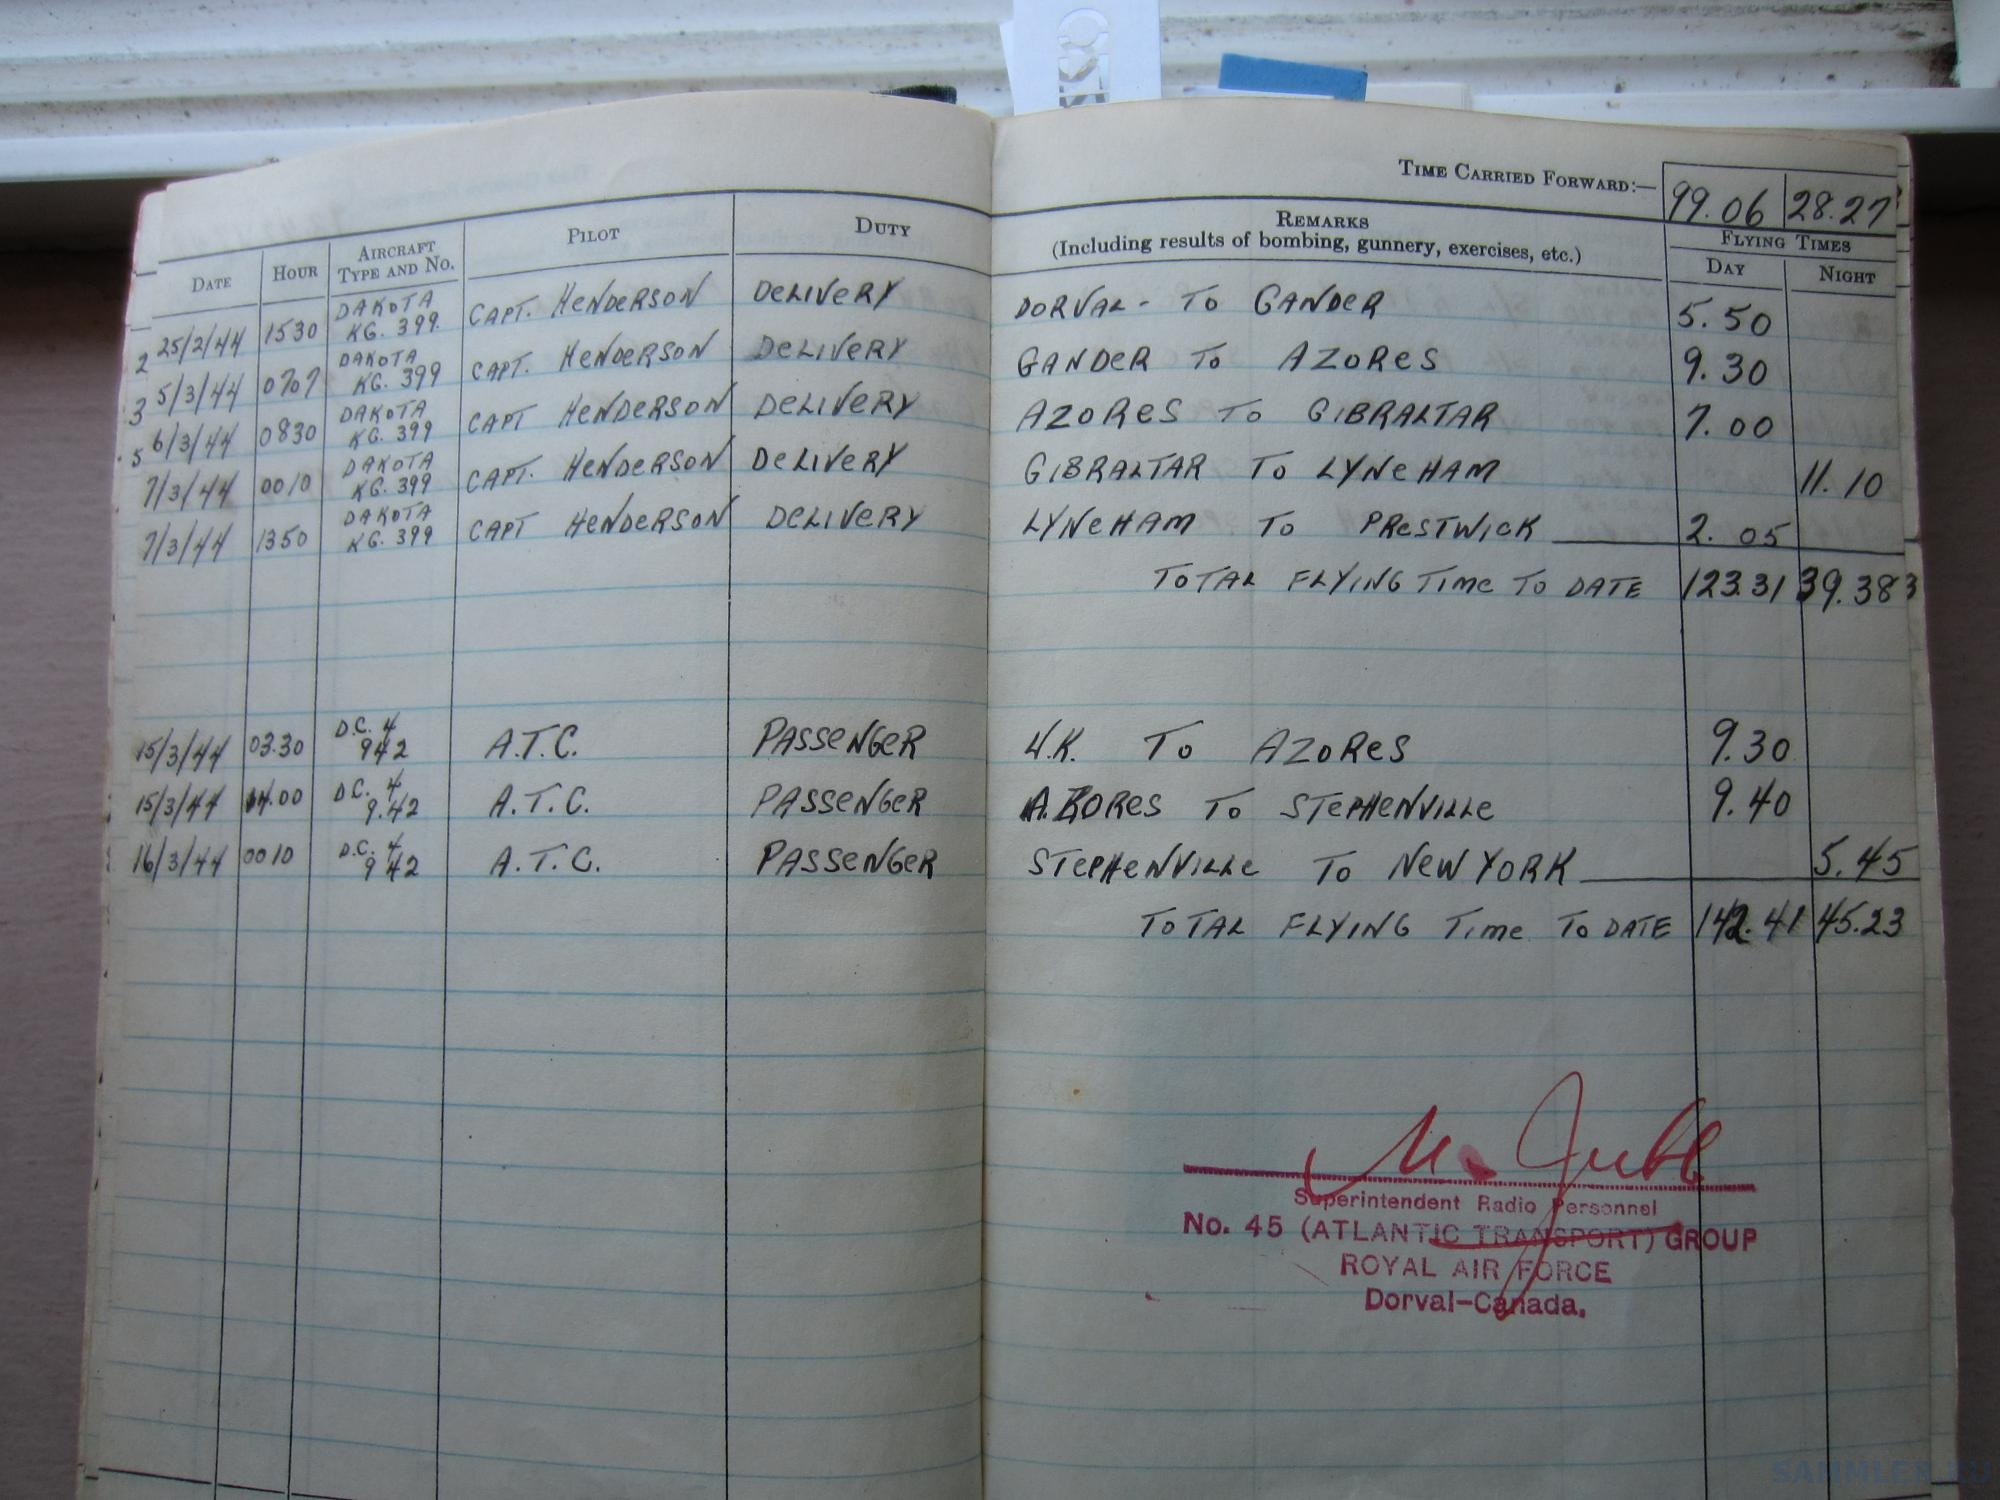 TIME CARRIED FORWARD:— 99.06 28.27
DATE HOUR AIRCRAFT TYPE AND NO. PILOT DUTY REMARKS (Including results of bombing, gunnery, exercises, etc.) FLYING TIMES DAY NIGHT
25/2/44 1530 DAKOTA KG. 399. CAPT. HENDERSON DELIVERY DORVAL - TO GANDER 5.50
5/3/44 0707 DAKOTA KG. 399 CAPT. HENDERSON DELIVERY GANDER TO AZORES 9.30
6/3/44 0830 DAKOTA KG. 399 CAPT HENDERSON DELIVERY AZORES TO GIBRALTAR 7.00
7/3/44 0010 DAKOTA KG. 399 CAPT. HENDERSON DELIVERY GIBRALTAR TO LYNEHAM 11.10
7/3/44 1350 DAKOTA KG. 399 CAPT HENDERSON DELIVERY LYNEHAM TO PRESTWICK 2.05
TOTAL FLYING TIME TO DATE 123.31 39.38
15/3/44 03.30 D.C. 4 942 A.T.C. PASSENGER U.K. TO AZORES 9.30
15/3/44 14.00 D.C. 4 9.42 A.T.C. PASSENGER AZORES TO STEPHENVILLE 9.40
16/3/44 0010 D.C. 4 942 A.T.C. PASSENGER STEPHENVILLE TO NEW YORK 5.45
TOTAL FLYING TIME TO DATE 142.41 45.23
Superintendent Radio Personnel
No. 45 (ATLANTIC TRANSPORT) GROUP
ROYAL AIR FORCE
Dorval-Canada.
SAMMLER.RU